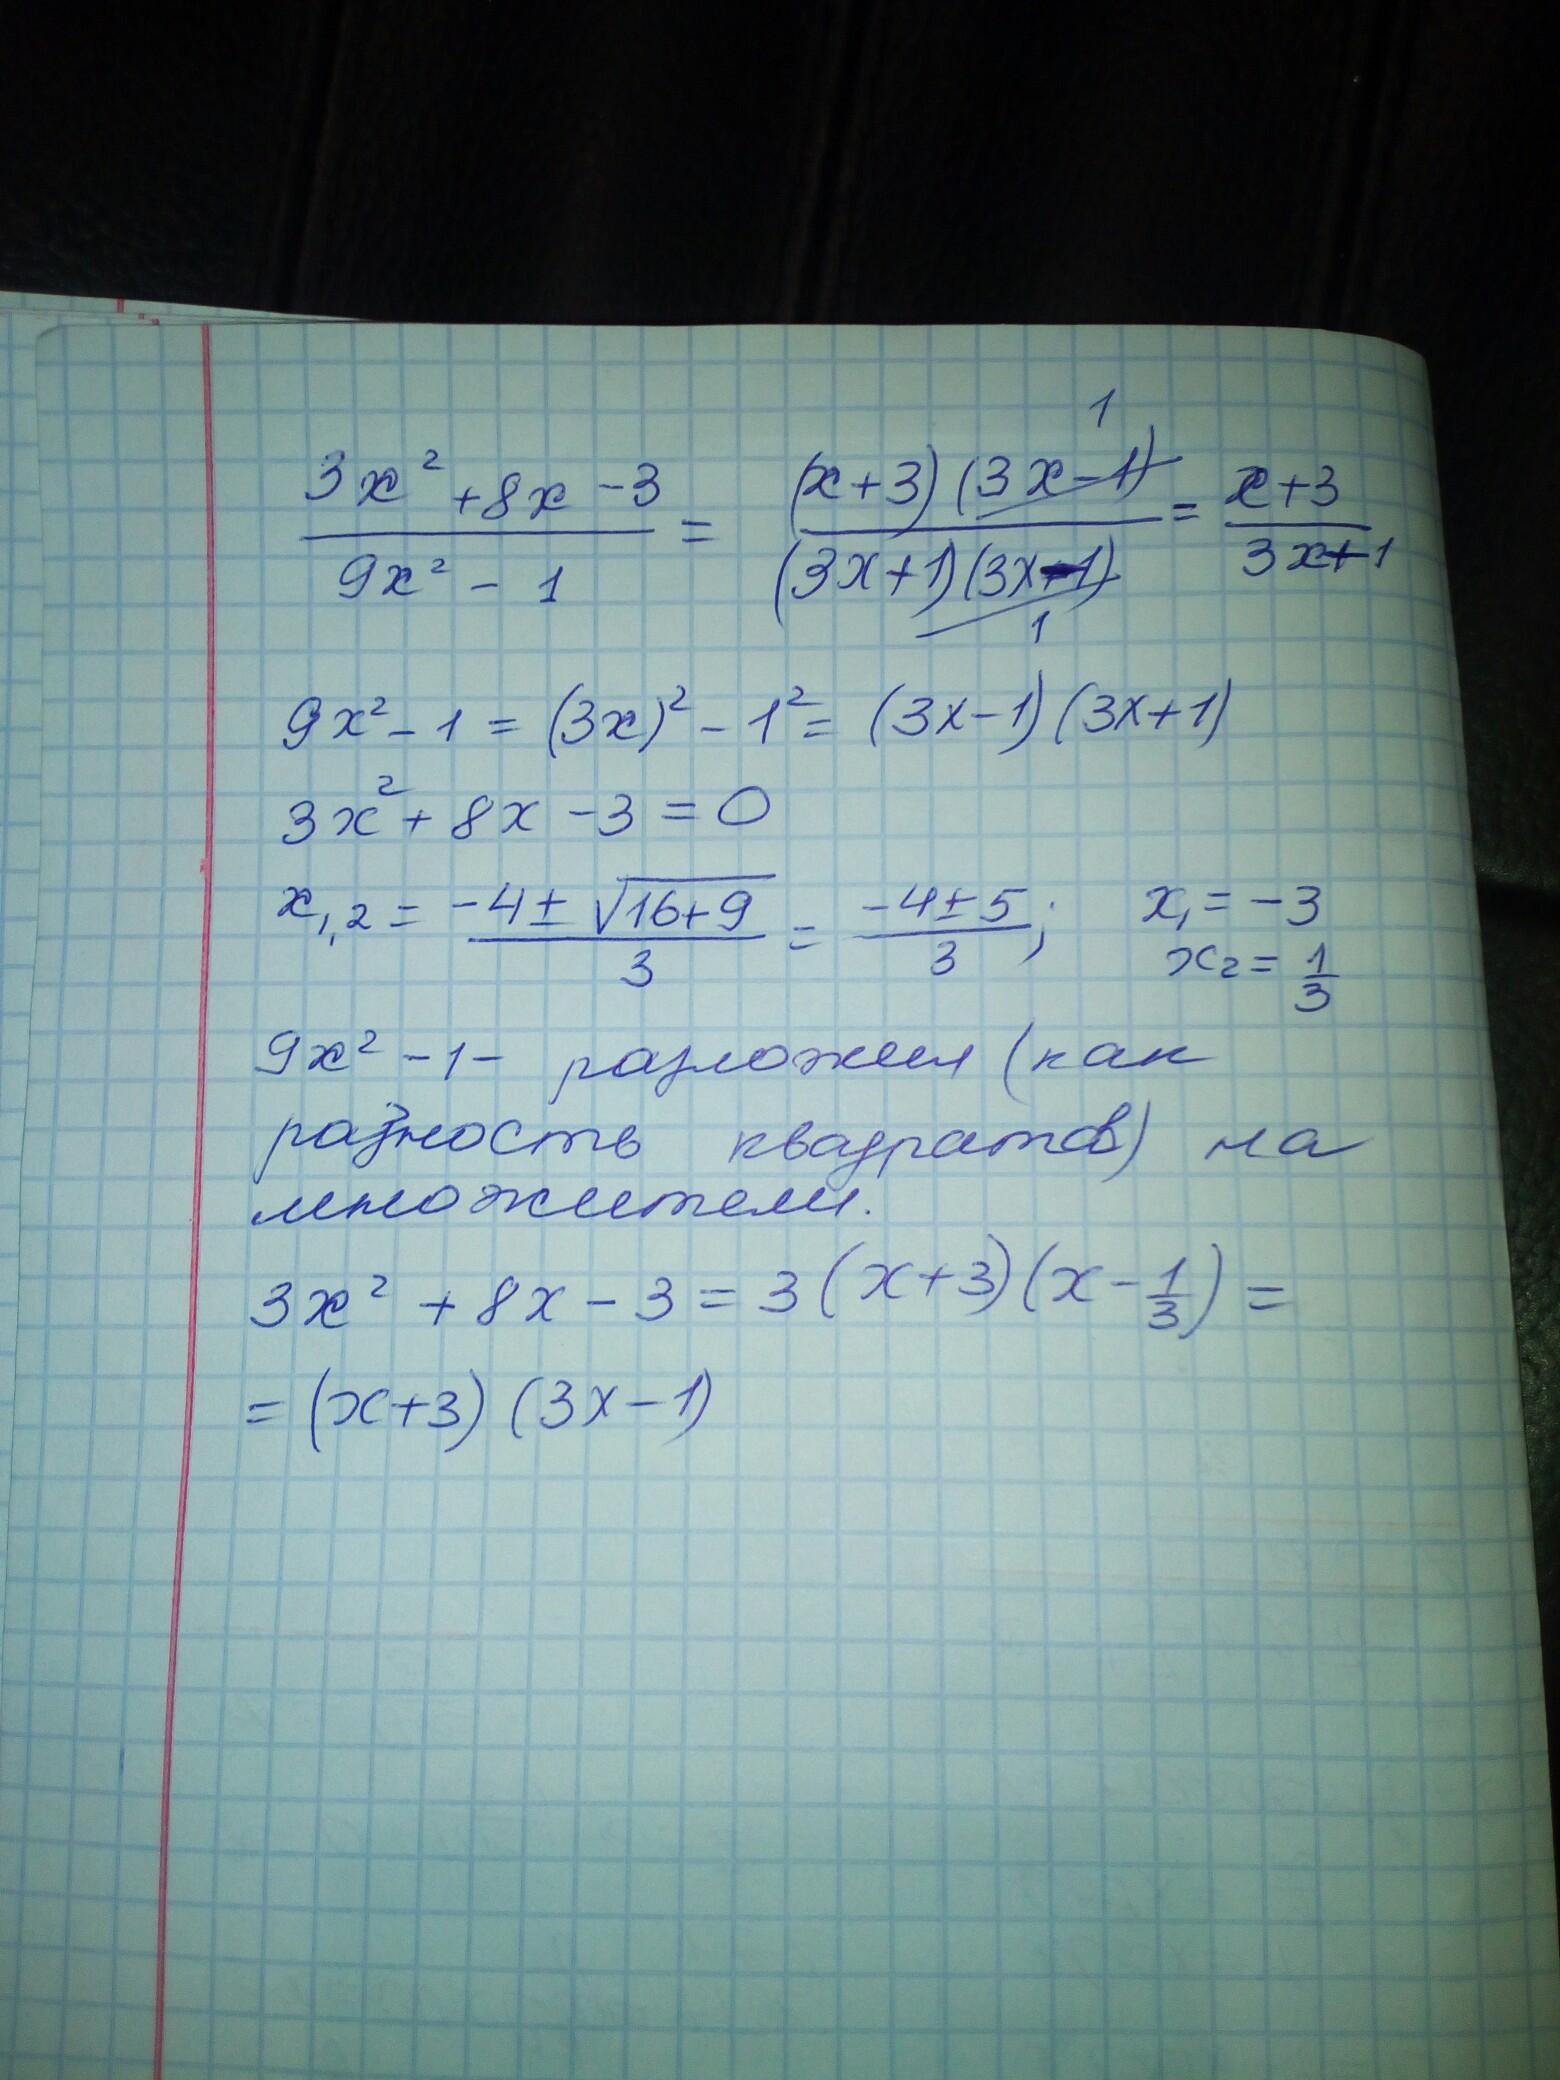 1
3x² + 8x - 3 / 9x² - 1 = (x+3)(3x-1) / (3x+1)(3x-1) = x+3 / 3x+1
1
9x² - 1 = (3x)² - 1² = (3x-1)(3x+1)
3x² + 8x - 3 = 0
x₁,₂ = -4 ± √16+9 / 3 = -4 ± 5 / 3; x₁ = -3
x₂ = 1/3
9x² - 1 - разложил (как
разность квадратов) на
множители.
3x² + 8x - 3 = 3(x+3)(x - 1/3) =
= (x+3)(3x-1)